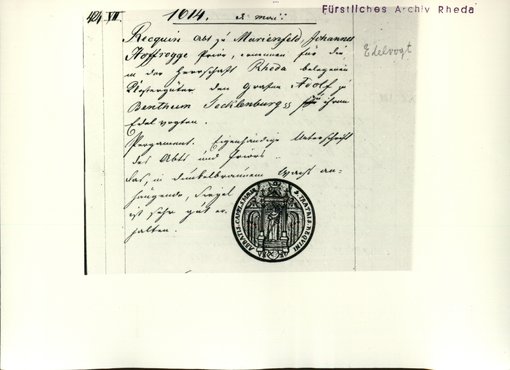 Fürstliches Archiv Rheda
424 VII. 1614. d. mai
Recquin Abt zu Marienfeld, Johannes
Hoffregge Prior, ernennen für die
in der Herrschaft Rheda belegenen
Klostergüter den Grafen Adolf zu
Benthem Tecklenburg zu ihrem
Edelvogten.
Edelvogt
Pergament. Eigenhändige Unterschrift
des Abts und Priors.
Das, in dunkelbraunem Wachs an-
hängende, Siegel
ist sehr gut er-
halten.